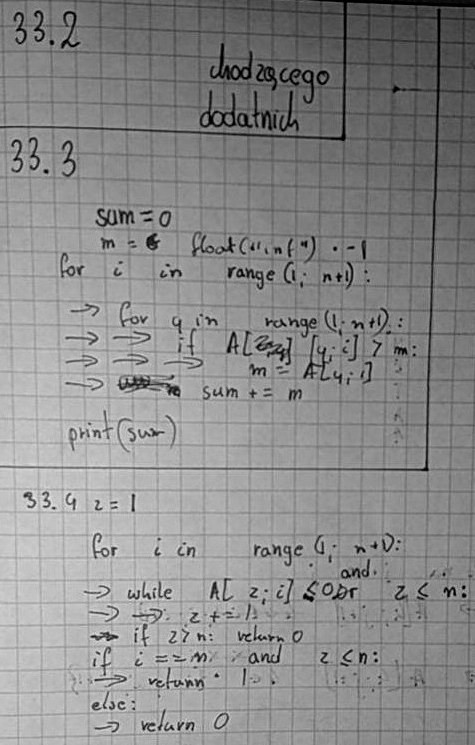 33.2
chodzącego
dodatnich
33.3
sum = 0
m = float("inf") · -1
for i in range(1; n+1):
→ for y in range(1; n+1):
→ → if A[y; i] > m:
→ → → m = A[y; i]
→ sum += m
print(sum)
33.4 z = 1
for i in range(1; n+1):
and
→ while A[z; i] ≤ 0 z ≤ n:
→ → z += 1
→ if z > n: return 0
if i == n and z ≤ n:
→ return 1
else:
→ return 0